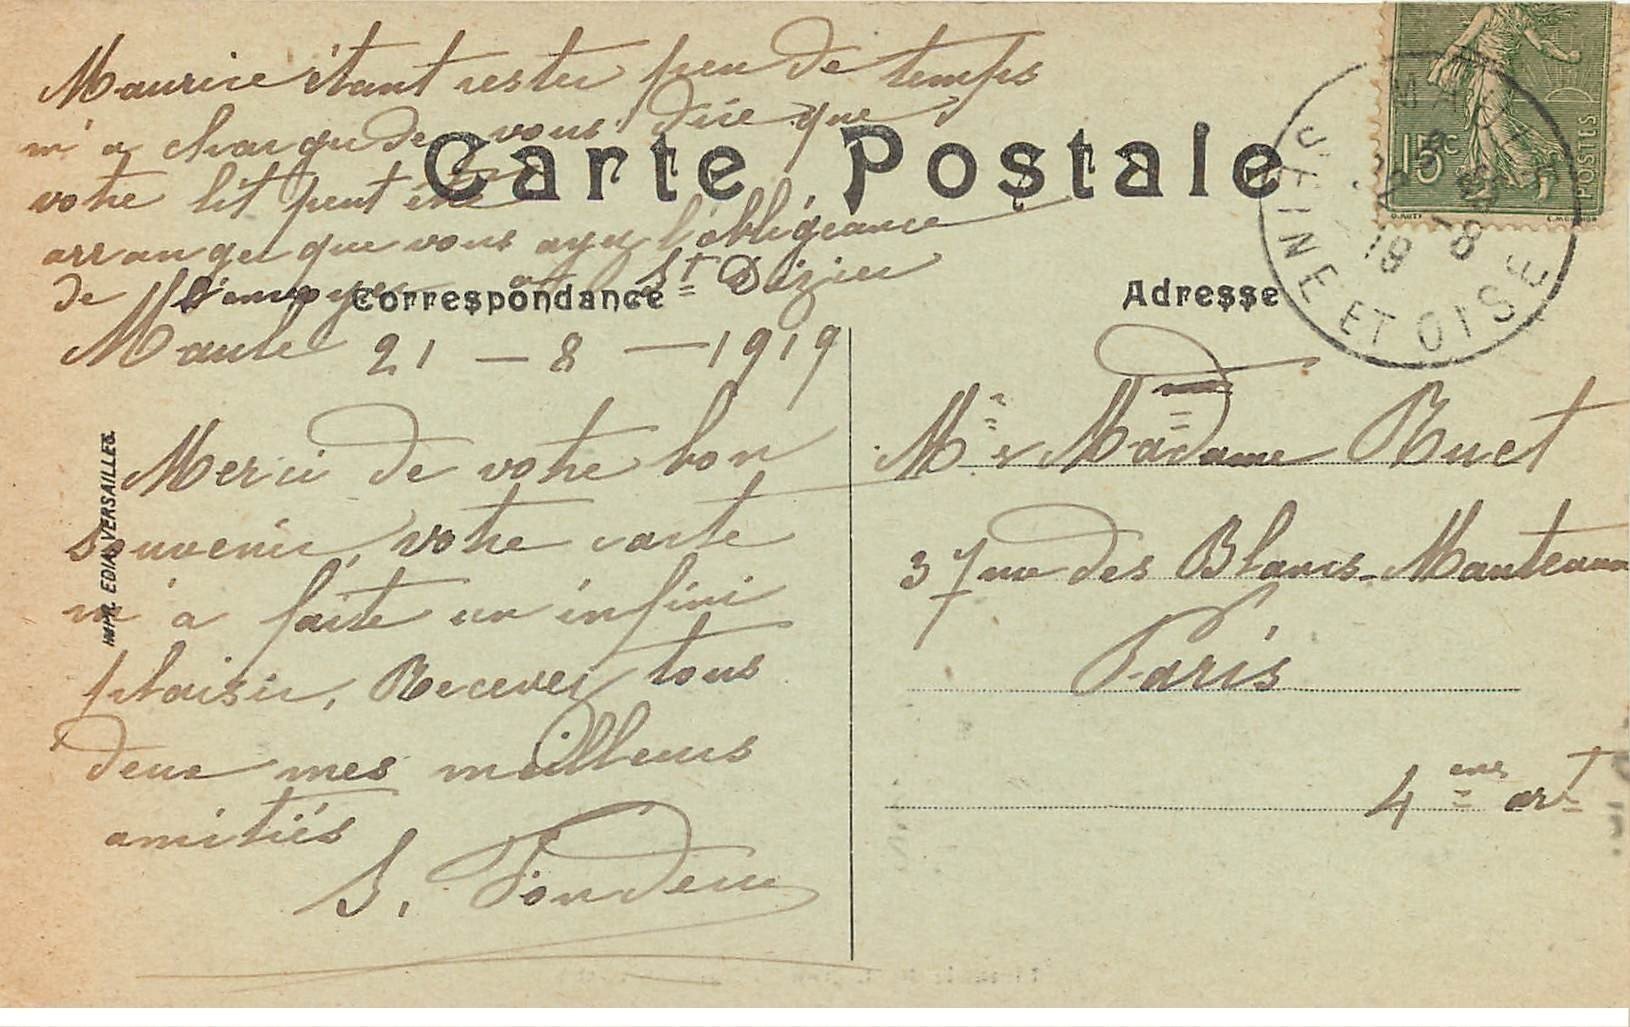 Maurice étant rester peu de temps
m'a charger de vous dire que
votre lit peut être
arranger que vous ayez l'obligeance
de l'envoyer a St Dizier
Carte Postale
Correspondance
Maule 21 - 8 - 1919
Merci de votre bon
souvenir, votre carte
m'a faite un infini
plaisir, Recever tous
deux mes meilleurs
amitiés
S.
IMPR. EDIA, VERSAILLES.
Adresse
Mr & Madame Ruet
37 rue des Blancs-Manteaux
Paris
4 em art
15c
POSTES
MAULE
SEINE ET OISE